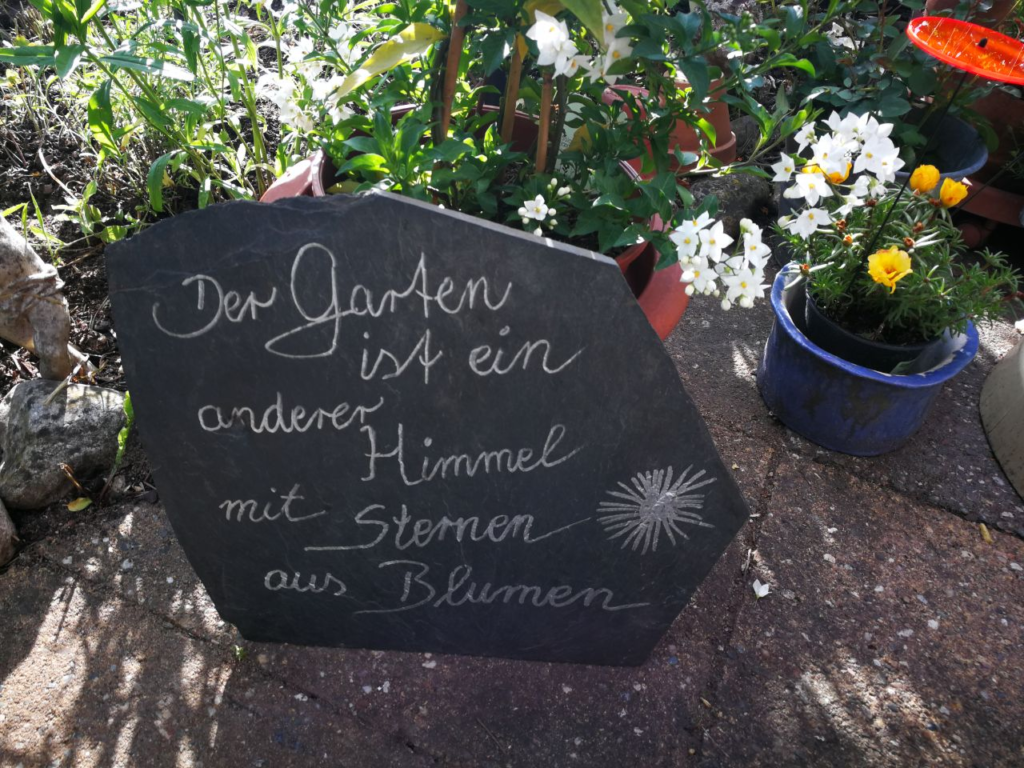 Der Garten
ist ein
anderer
Himmel
mit Sternen
aus Blumen